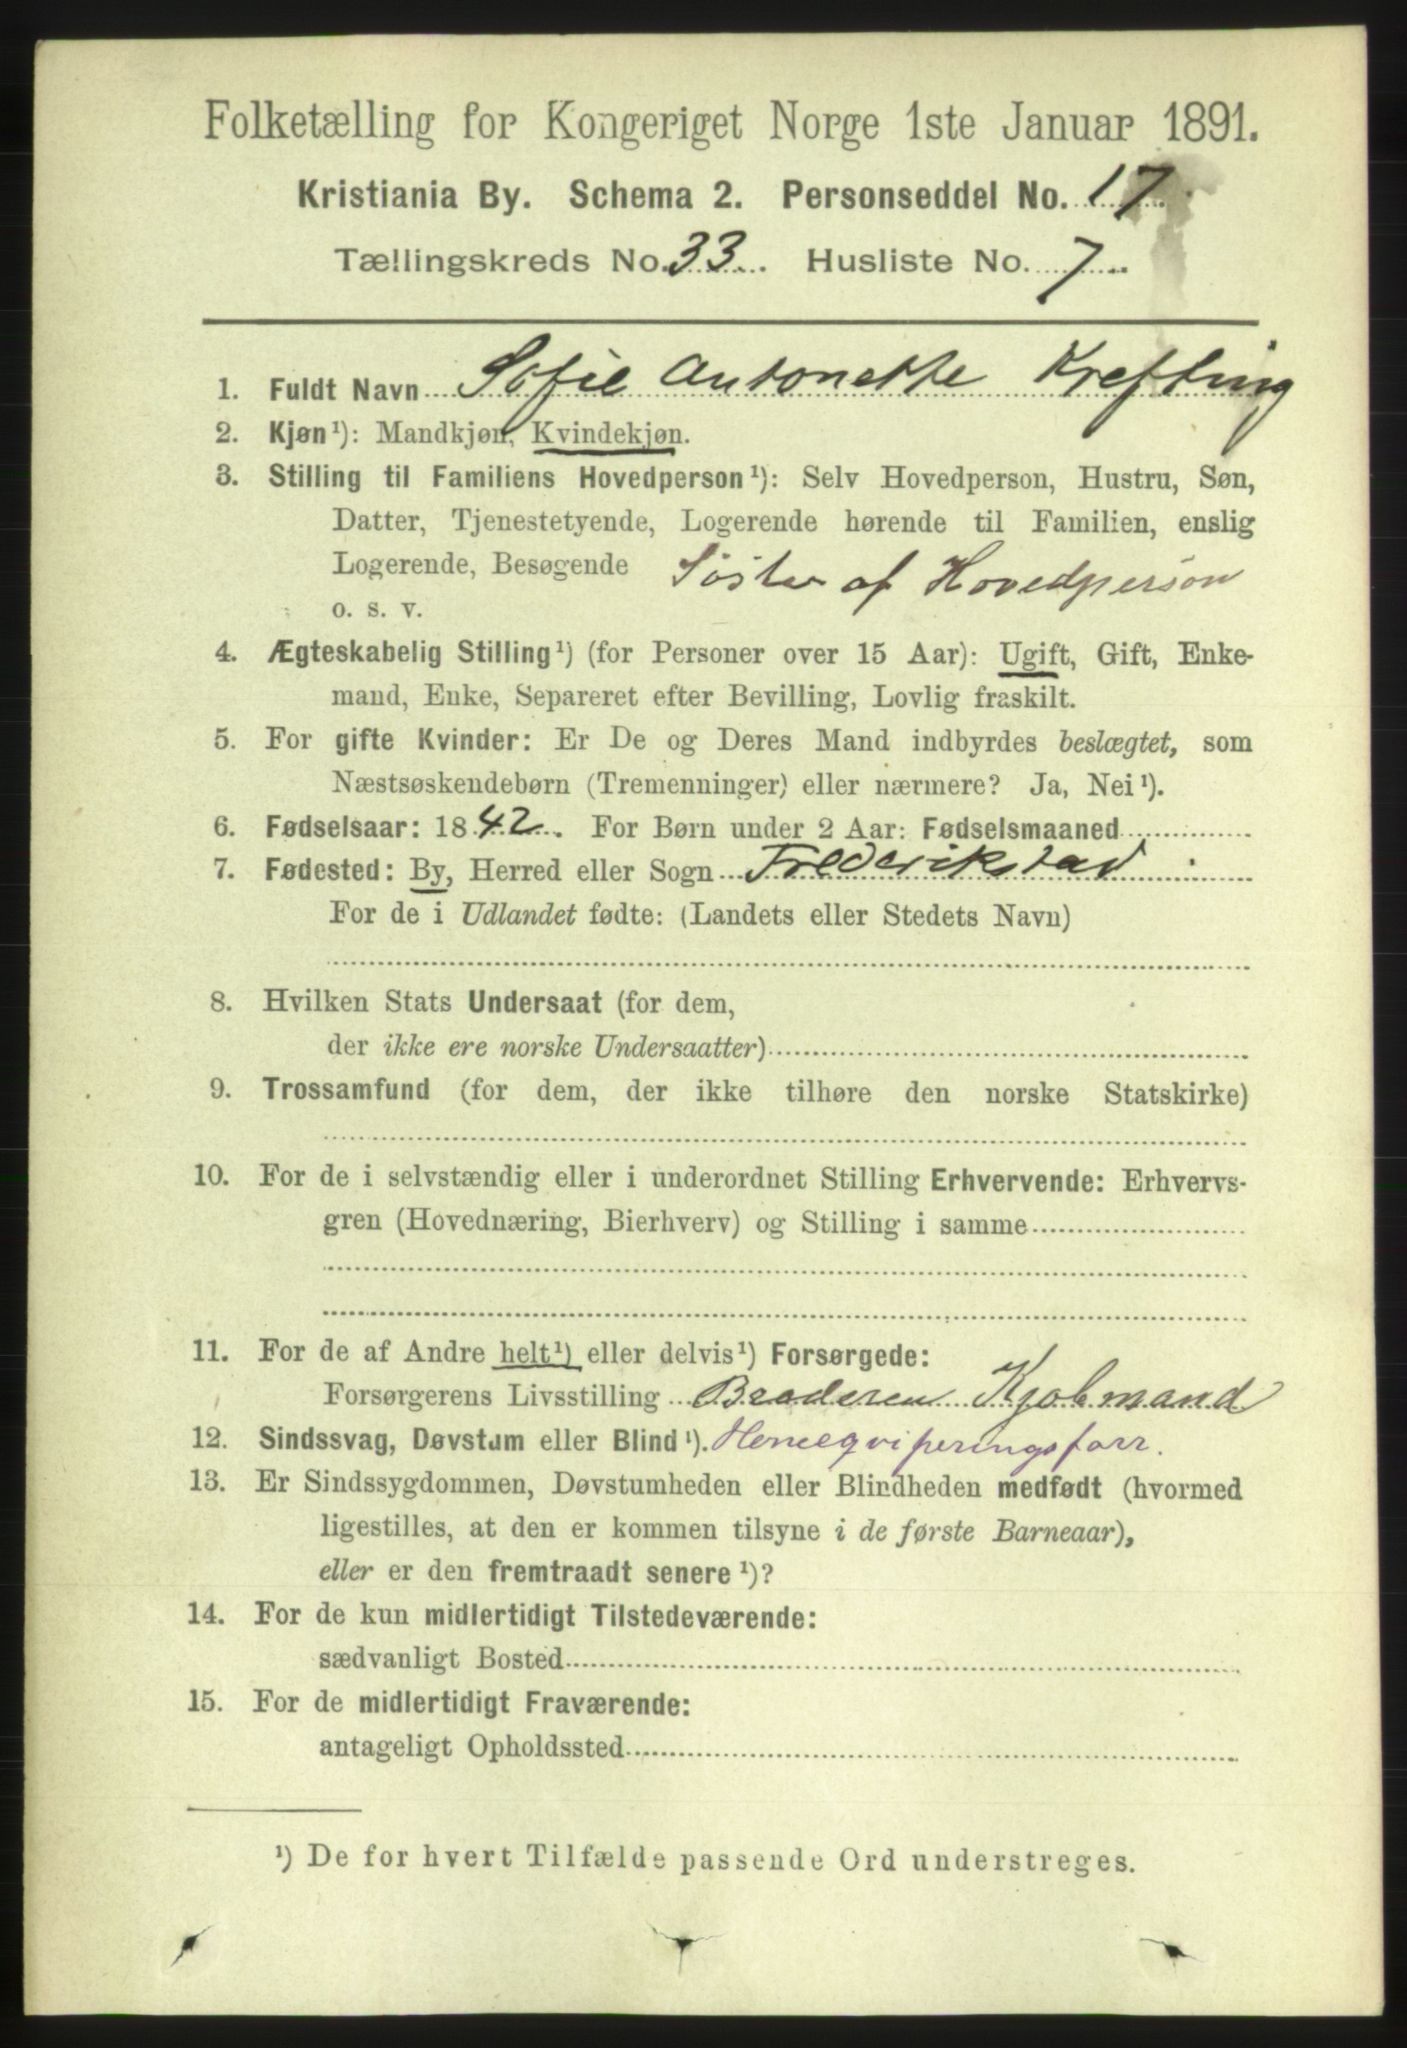 Folketælling for Kongeriget Norge 1ste Januar 1891.
Kristiania By. Schema 2. Personseddel No. 17
Tællingskreds No. 33. Husliste No. 7
1. Fuldt Navn Sofie Antonette Krefting
2. Kjøn¹): Mandkjøn, Kvindekjøn.
3. Stilling til Familiens Hovedperson¹): Selv Hovedperson, Hustru, Søn,
Datter, Tjenestetyende, Logerende hørende til Familien, enslig
Logerende, Besøgende Söster af Hovedperson
o. s. v.
4. Ægteskabelig Stilling¹) (for Personer over 15 Aar): Ugift, Gift, Enke-
mand, Enke, Separeret efter Bevilling, Lovlig fraskilt.
5. For gifte Kvinder: Er De og Deres Mand indbyrdes beslægtet, som
Næstsøskendebørn (Tremenninger) eller nærmere? Ja, Nei¹).
6. Fødselsaar: 1842. For Børn under 2 Aar: Fødselsmaaned
7. Fødested: By, Herred eller Sogn Frederikstad
For de i Udlandet fødte: (Landets eller Stedets Navn)
8. Hvilken Stats Undersaat (for dem,
der ikke ere norske Undersaatter)
9. Trossamfund (for dem, der ikke tilhøre den norske Statskirke)
10. For de i selvstændig eller i underordnet Stilling Erhvervende: Erhvervs-
gren (Hovednæring, Bierhverv) og Stilling i samme
11. For de af Andre helt¹) eller delvis¹) Forsørgede:
Forsørgerens Livsstilling Broderen Kjøbmand
12. Sindssvag, Døvstum eller Blind¹). Herreeqviperingsforr.
13. Er Sindssygdommen, Døvstumheden eller Blindheden medfødt (hvormed
ligestilles, at den er kommen tilsyne i de første Barneaar),
eller er den fremtraadt senere¹)?
14. For de kun midlertidigt Tilstedeværende:
sædvanligt Bosted
15. For de midlertidigt Fraværende:
antageligt Opholdssted
¹) De for hvert Tilfælde passende Ord understreges.